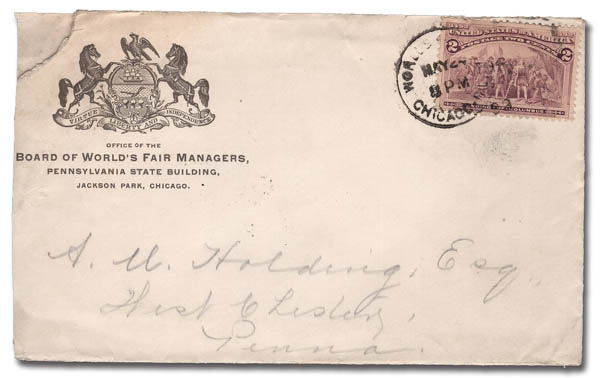 VIRTUE LIBERTY AND INDEPENDENCE
OFFICE OF THE
BOARD OF WORLD'S FAIR MANAGERS,
PENNSYLVANIA STATE BUILDING,
JACKSON PARK, CHICAGO.
WORLD'S
MAY 2
PM
CHICAGO
UNITED STATES OF AMERICA
POSTAGE TWO CENTS
2 2
COLUMBUS
A. M. Holding, Esq.
West Chester,
Penna.